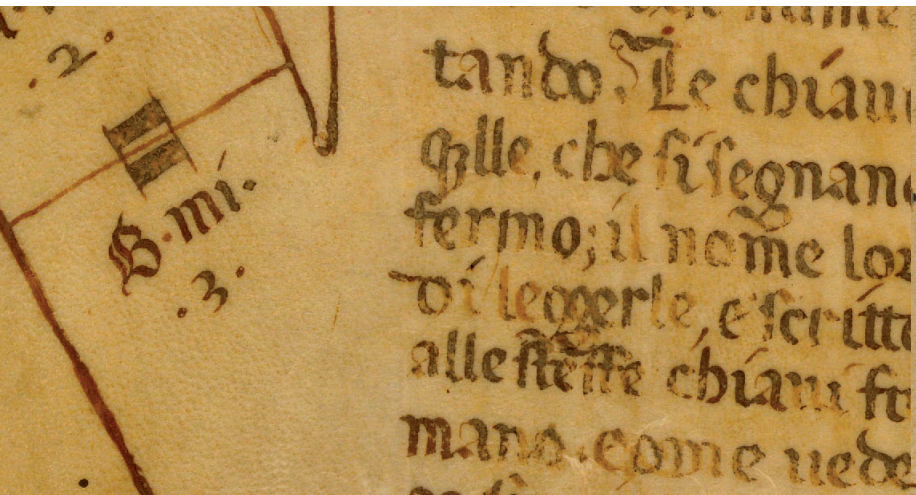 .2.
B.mi.
.3.
tando. Le chiaui
q̃lle, che si segnano
fermo; il nome lor
di leggerle e scritto
alle stesse chiaui
mano. come uede